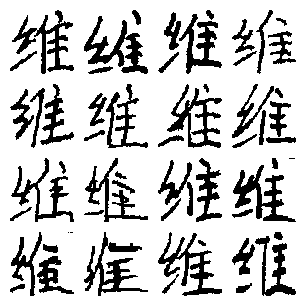 维维维维
维维维维
维维维维
维维维维